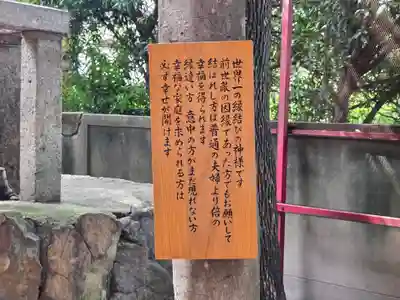 世界一の縁結びの神様です
前世家の因縁であった方でもお願いして
結ばれし方は普通の夫婦より倍の
幸福を得られます
縁遠い方 意中の方がまだ現れない方
幸福な家庭を求められる方は
必ず幸せが開けます